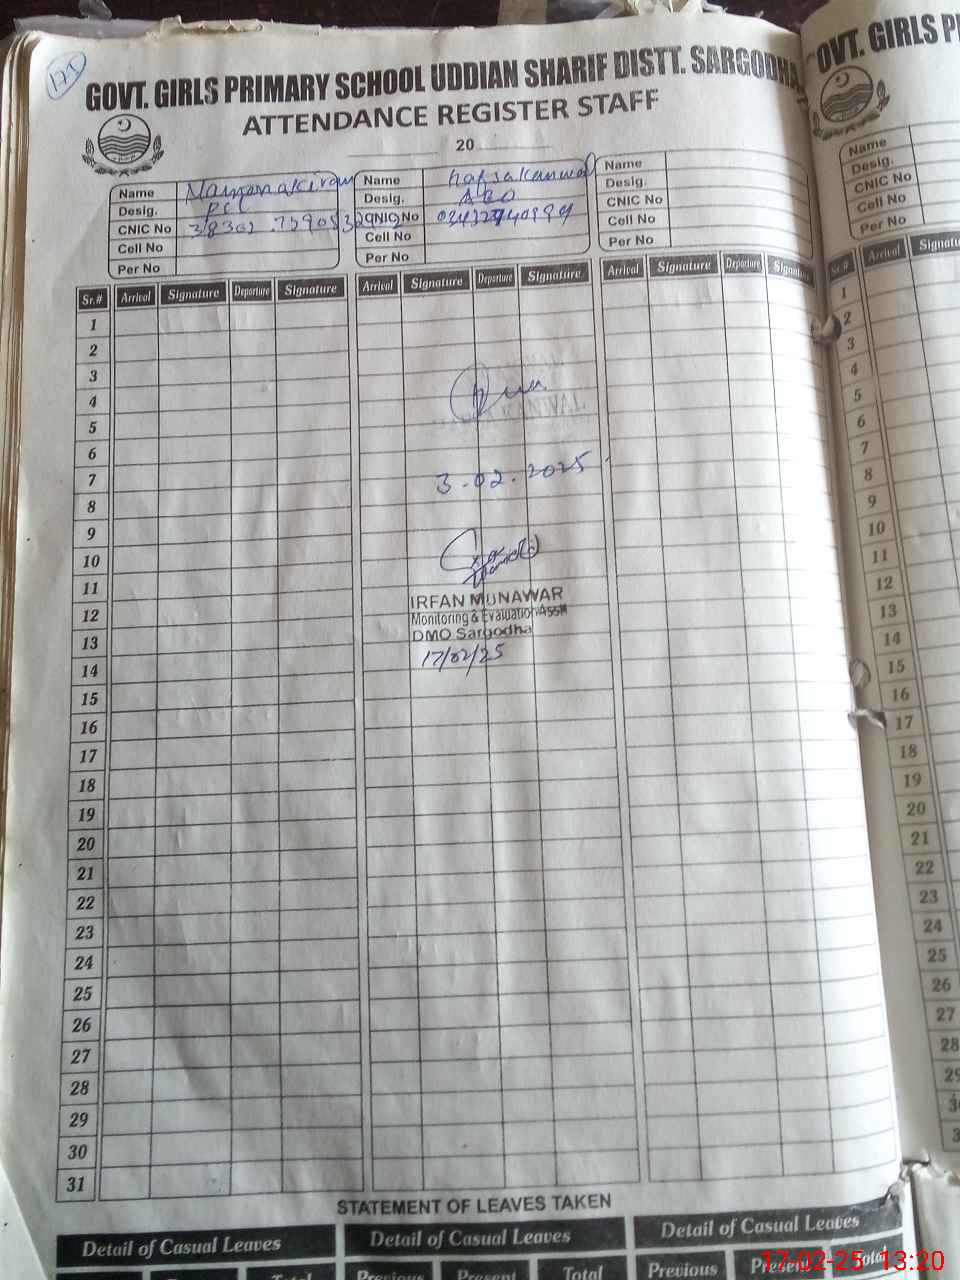 175
GOVT. GIRLS PRIMARY SCHOOL UDDIAN SHARIF DISTT. SARGODHA
ATTENDANCE REGISTER STAFF
20
Name Maimona Kiran Name Name
Desig. Desig. Desig.
CNIC No CNIC No CNIC No
Cell No Cell No Cell No
Per No Per No Per No
Sr.# Arrival Signature Departure Signature Arrival Signature Departure Signature Arrival Signature Departure
1
2
3
4
5
6
7
3.02.2025
8
9
10
11
IRFAN MUNAWAR
12
Monitoring & Evaluation Assn
13
DMO Sargodha
14
17/02/25
15
16
17
18
19
20
21
22
23
24
25
26
27
28
29
30
31
STATEMENT OF LEAVES TAKEN
Detail of Casual Leaves Detail of Casual Leaves Detail of Casual Leaves
Total Previous Present Total Previous Present Total
OVT. GIRLS
Name
Desig.
CNIC No
Cell No
Per No
Sr.# Arrival
1
2
3
4
5
6
7
8
9
10
11
12
13
14
15
16
17
18
19
20
21
22
23
24
25
26
27
28
17-02-25 13:20